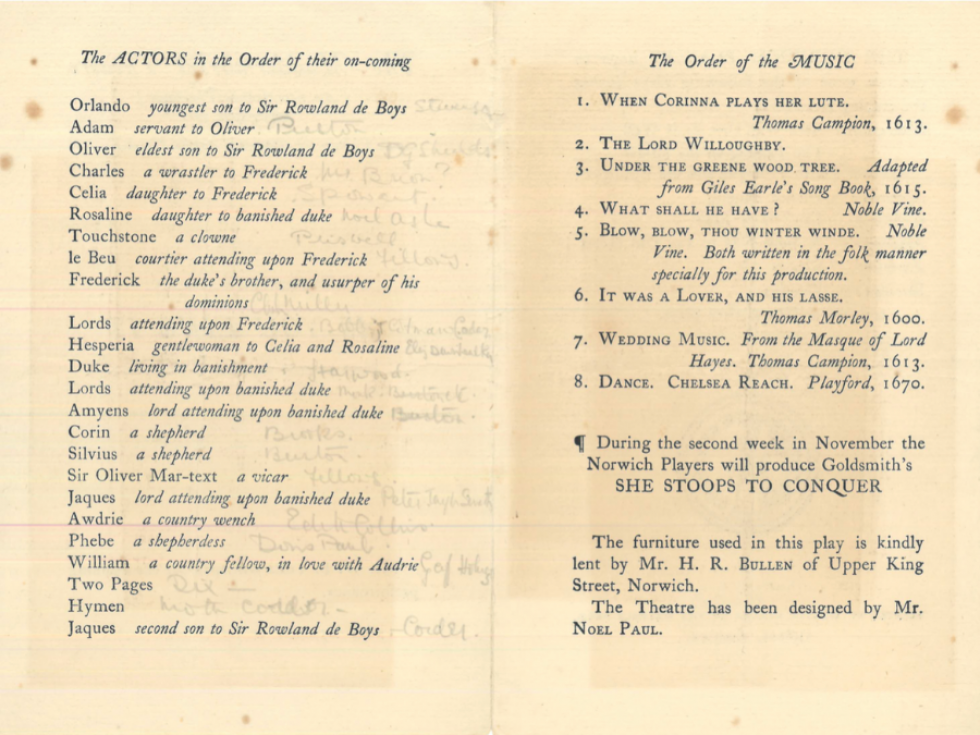 The ACTORS in the Order of their on-coming
Orlando youngest son to Sir Rowland de Boys
Adam servant to Oliver Burton
Oliver eldest son to Sir Rowland de Boys
Charles a wrastler to Frederick Mr.
Celia daughter to Frederick
Rosaline daughter to banished duke
Touchstone a clowne
le Beu courtier attending upon Frederick Fellows.
Frederick the duke's brother, and usurper of his
dominions
Lords attending upon Frederick
Hesperia gentlewoman to Celia and Rosaline
Duke living in banishment Haywood.
Lords attending upon banished duke
Amyens lord attending upon banished duke Burton.
Corin a shepherd Burks.
Silvius a shepherd Burton.
Sir Oliver Mar-text a vicar Fellows
Jaques lord attending upon banished duke Peter
Awdrie a country wench Edith Collins.
Phebe a shepherdess Doris Paul.
William a country fellow, in love with Audrie
Two Pages Rix
Hymen
Jaques second son to Sir Rowland de Boys Corder.
The Order of the MUSIC
1. WHEN CORINNA PLAYS HER LUTE.
Thomas Campion, 1613.
2. THE LORD WILLOUGHBY.
3. UNDER THE GREENE WOOD TREE. Adapted
from Giles Earle's Song Book, 1615.
4. WHAT SHALL HE HAVE? Noble Vine.
5. BLOW, BLOW, THOU WINTER WINDE. Noble
Vine. Both written in the folk manner
specially for this production.
6. IT WAS A LOVER, AND HIS LASSE.
Thomas Morley, 1600.
7. WEDDING MUSIC. From the Masque of Lord
Hayes. Thomas Campion, 1613.
8. DANCE. CHELSEA REACH. Playford, 1670.
¶ During the second week in November the
Norwich Players will produce Goldsmith's
SHE STOOPS TO CONQUER
The furniture used in this play is kindly
lent by Mr. H. R. BULLEN of Upper King
Street, Norwich.
The Theatre has been designed by Mr.
NOEL PAUL.